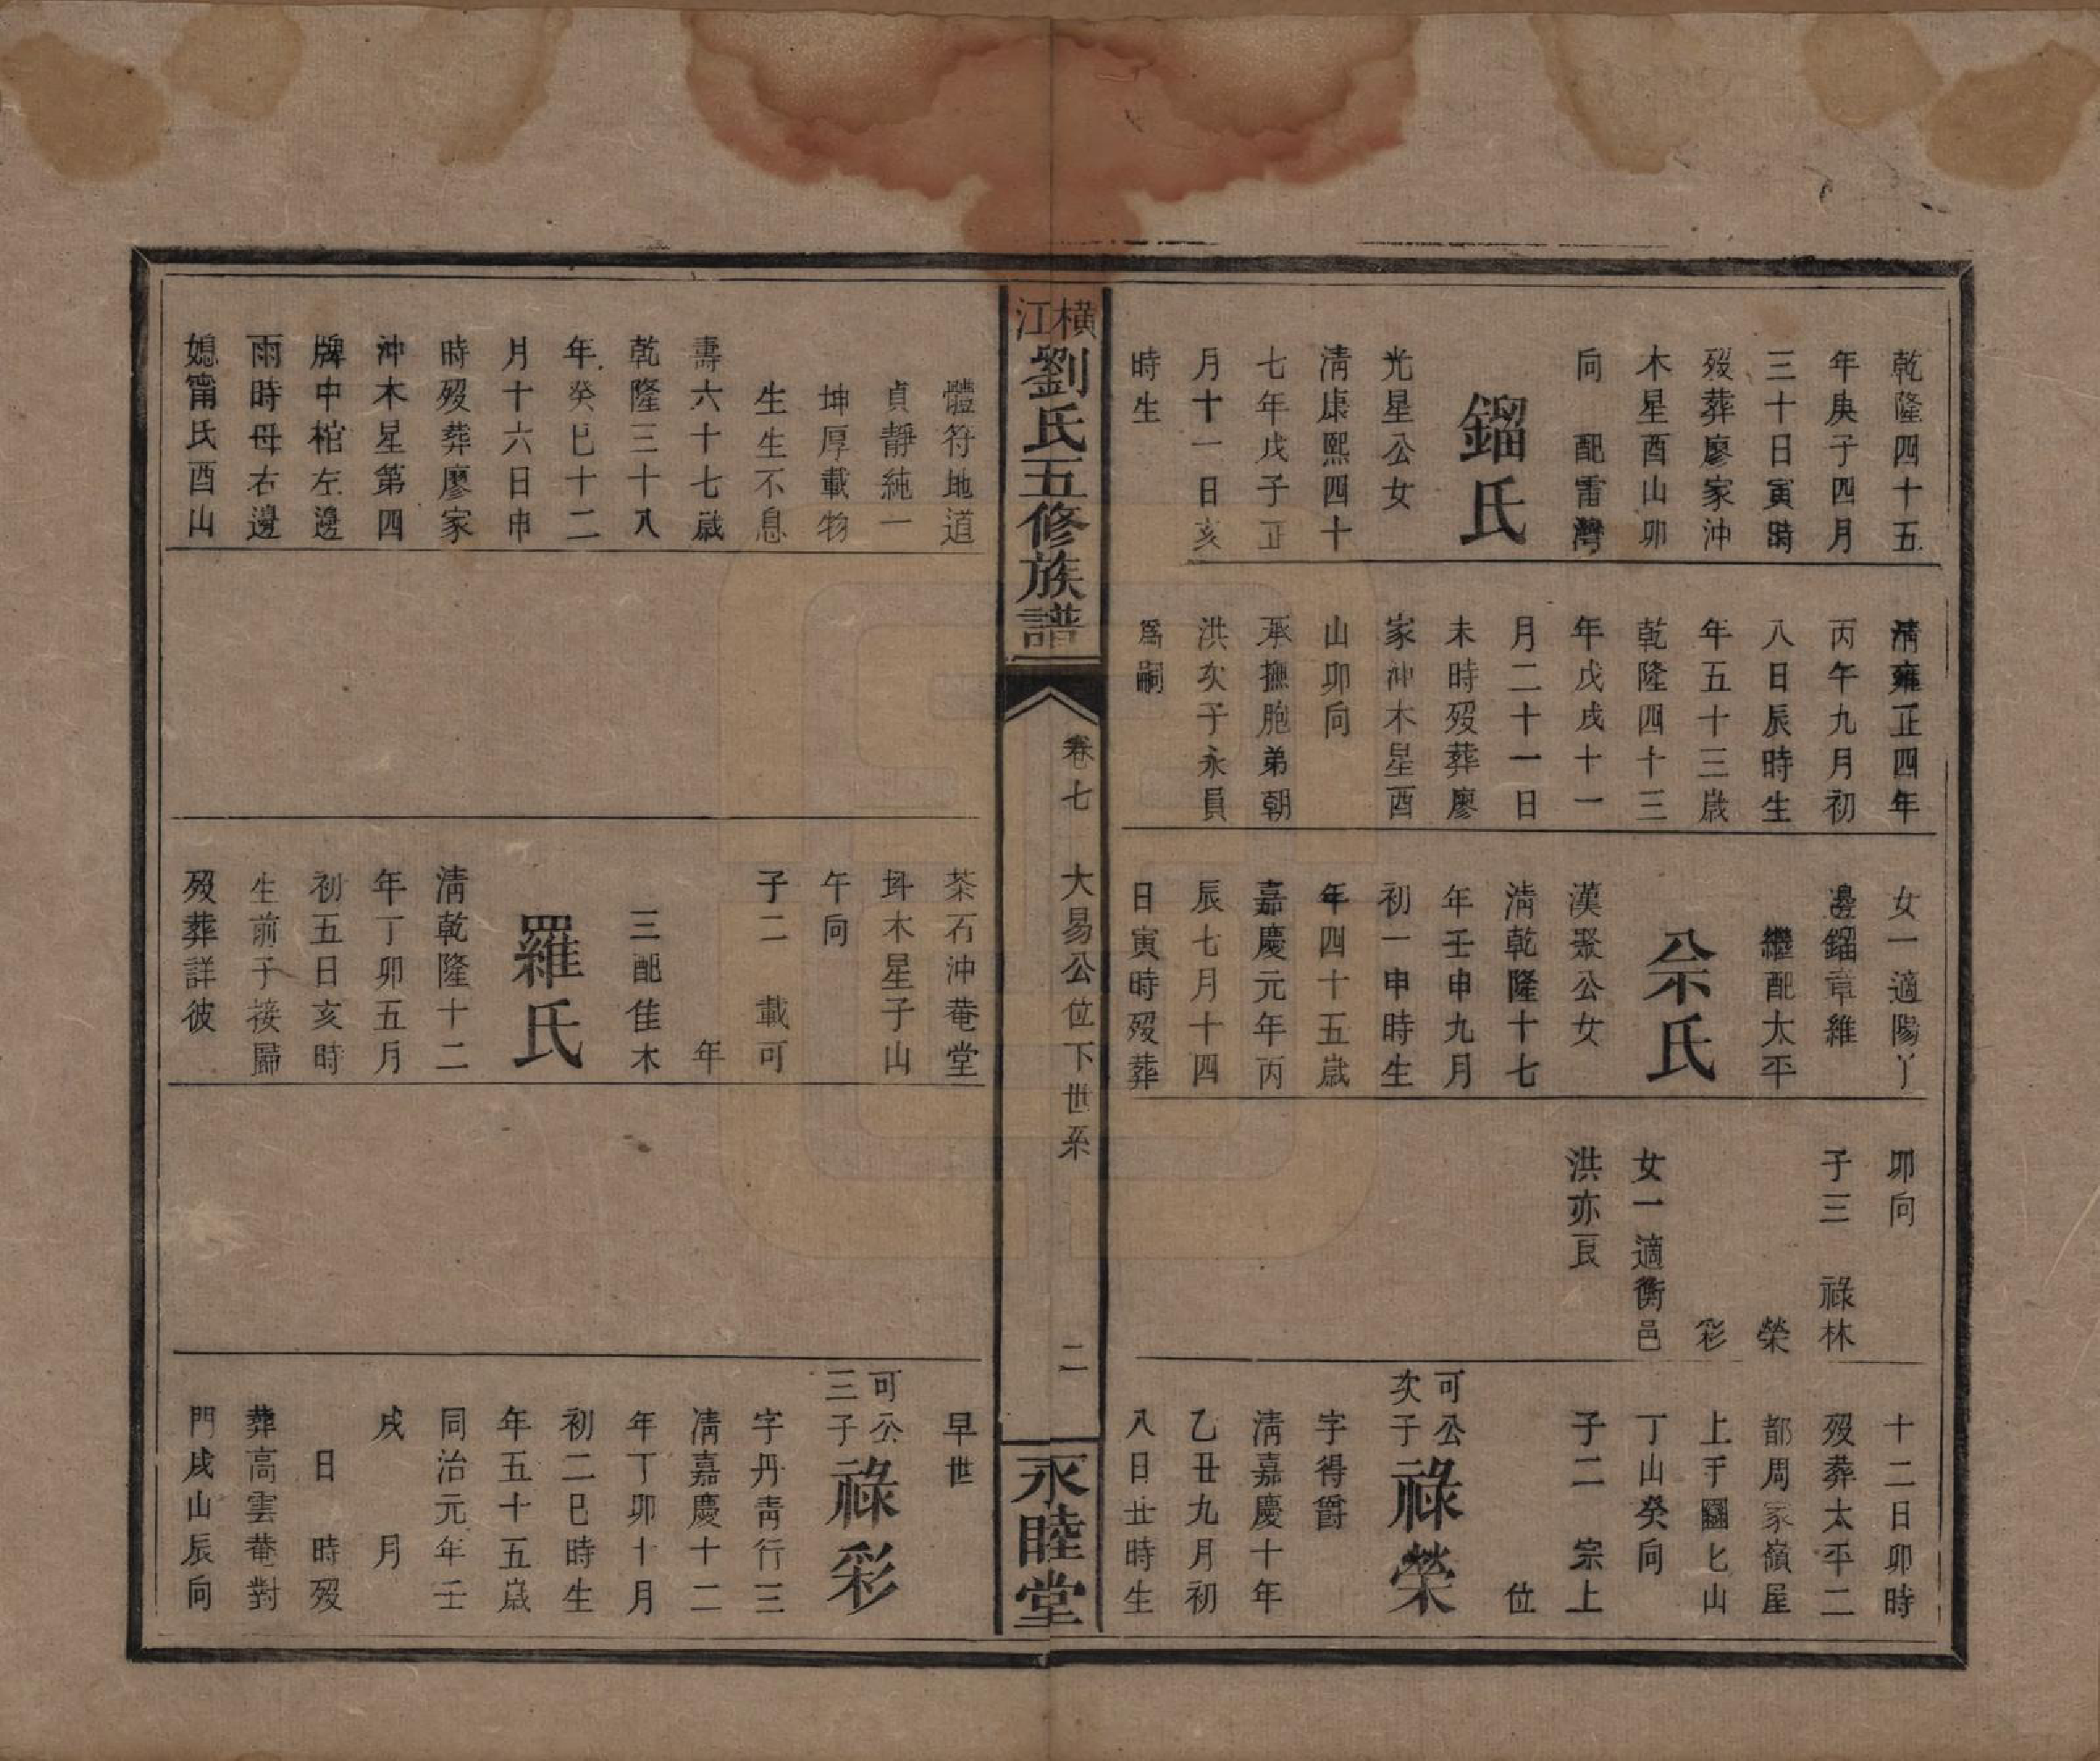 乾隆四十五
年庚子四月
三十日寅時
歿葬廖家沖
木星酉山卯
向　配雷灣
鎦氏
光星公女
清康熙四十
七年戊子正
月十一日亥
時生
清雍正四年
丙午九月初
八日辰時生
年五十三歲
乾隆四十三
年戊戌十一
月二十一日
未時歿葬廖
家沖木星酉
山卯向
承撫胞弟朝
洪次子永員
爲嗣
女一適陽丫
邊鎦章維
繼配太平
佘氏
漢聚公女
清乾隆十七
年壬申九月
初一申時生
年四十五歲
嘉慶元年丙
辰七月十四
日寅時歿葬
卯向
子三　祿林
榮
彩
女一適衡邑
洪亦良
十二日卯時
歿葬太平二
都周家嶺屋
上手圞匕山
丁山癸向
子二　宗上
位
可公次子祿榮
字得爵
清嘉慶十年
乙丑九月初
八日丑時生
橫江劉氏五修族譜
卷七　大易公位下世系　二
永睦堂
體符地道
貞靜純一
坤厚載物
生生不息
壽六十七歲
乾隆三十八
年癸巳十二
月十六日申
時歿葬廖家
沖木星第四
牌中棺左邊
雨時母右邊
媳甯氏酉山
茶石沖菴堂
垪木星子山
午向
子二　載可
年
三配佳木
羅氏
清乾隆十二
年丁卯五月
初五日亥時
生前子接歸
歿葬詳彼
早世
可公三子祿彩
字丹青行三
清嘉慶十二
年丁卯十月
初二巳時生
年五十五歲
同治元年壬
戌　　月
日　時歿
葬高雲菴對
門戌山辰向